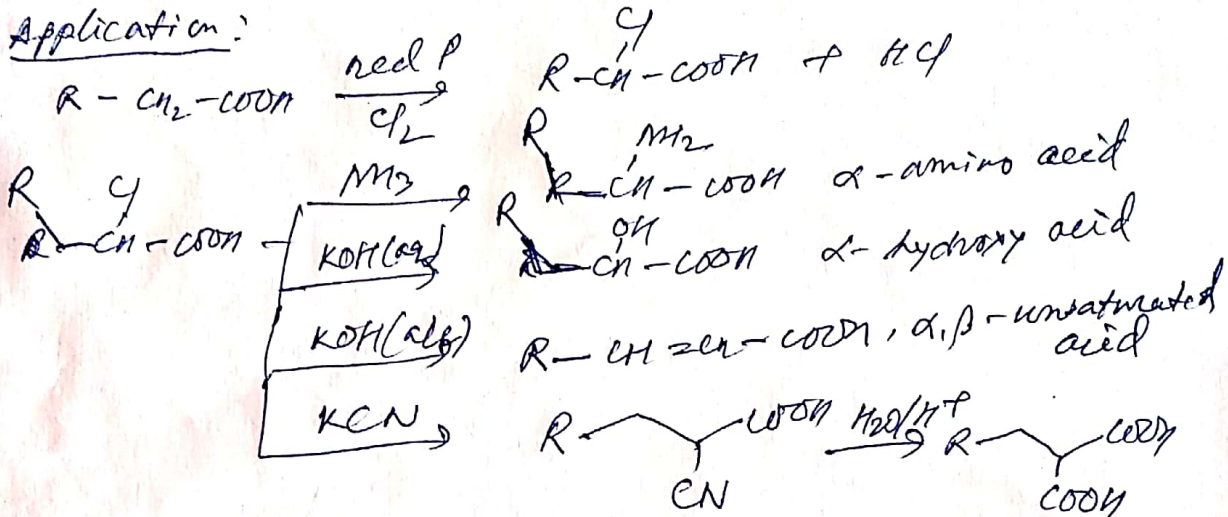 Application:
R - CH2 - COOH red P Cl2 R - CH - COOH + HCl
Cl
R Cl CH - COOH
NH3 R NH2 CH - COOH α-amino acid
KOH(aq) R OH CH - COOH α-hydroxy acid
KOH(alc) R - CH = CH - COOH, α,β-unsaturated acid
KCN R COOH CN H2O/H+ R COOH COOH